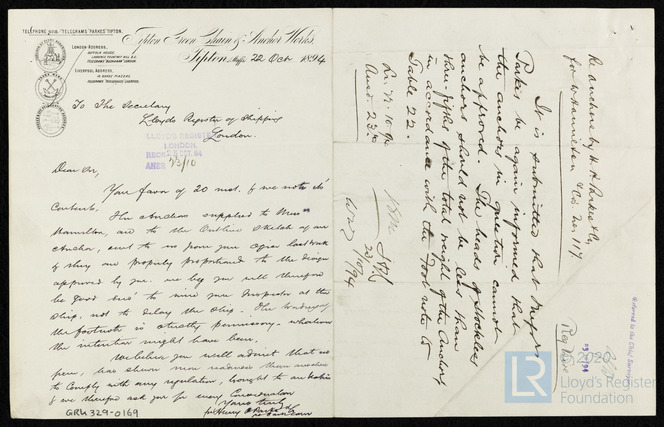 TELEPHONE No 18. TELEGRAMS "PARKES" TIPTON.
Tipton Green Chain & Anchor Works,
LONDON ADDRESS,
LIVERPOOL ADDRESS,
Tipton, Staffs 22 Oct 1894
To The Secretary
Lloyds Register of Shipping
London.
LLOYD'S REGISTER
LONDON.
RECD 23 OCT. 94
ANSD 23/10
Dear Sir,
Your favor of 20 inst. & we note its
Contents. The Anchors supplied to Messrs
Hamilton, are to the Outline Sketch of an
Anchor, sent to us from your Office last week
& they are properly proportioned to the design
approved by you. we beg you will therefore
be good to wire your Inspector at the
Ship, not to delay the Ship. The wording of
the footnote is strictly permissory - whatever
the intention might have been.
We believe you will admit that no
firm, has shewn more readiness than ourselves
to Comply with any regulation, brought to
& we therefore ask you for every Consideration
Yours truly
for Henry Parkes & Co
GRK 329-0169
Re anchors by H. Parkes & Co
for W. Hamilton & Co No. 117.
It is submitted that Messrs
Parkes be again informed that
the anchors in question cannot
be approved. The heads of stockless
anchors should not be less than
three fifths of the total weight of the Anchors
in accordance with the foot note to
Table 22.
23/10/94
Referred to the Chief Surveyor
© 2020
LR
Lloyd's Register
Foundation